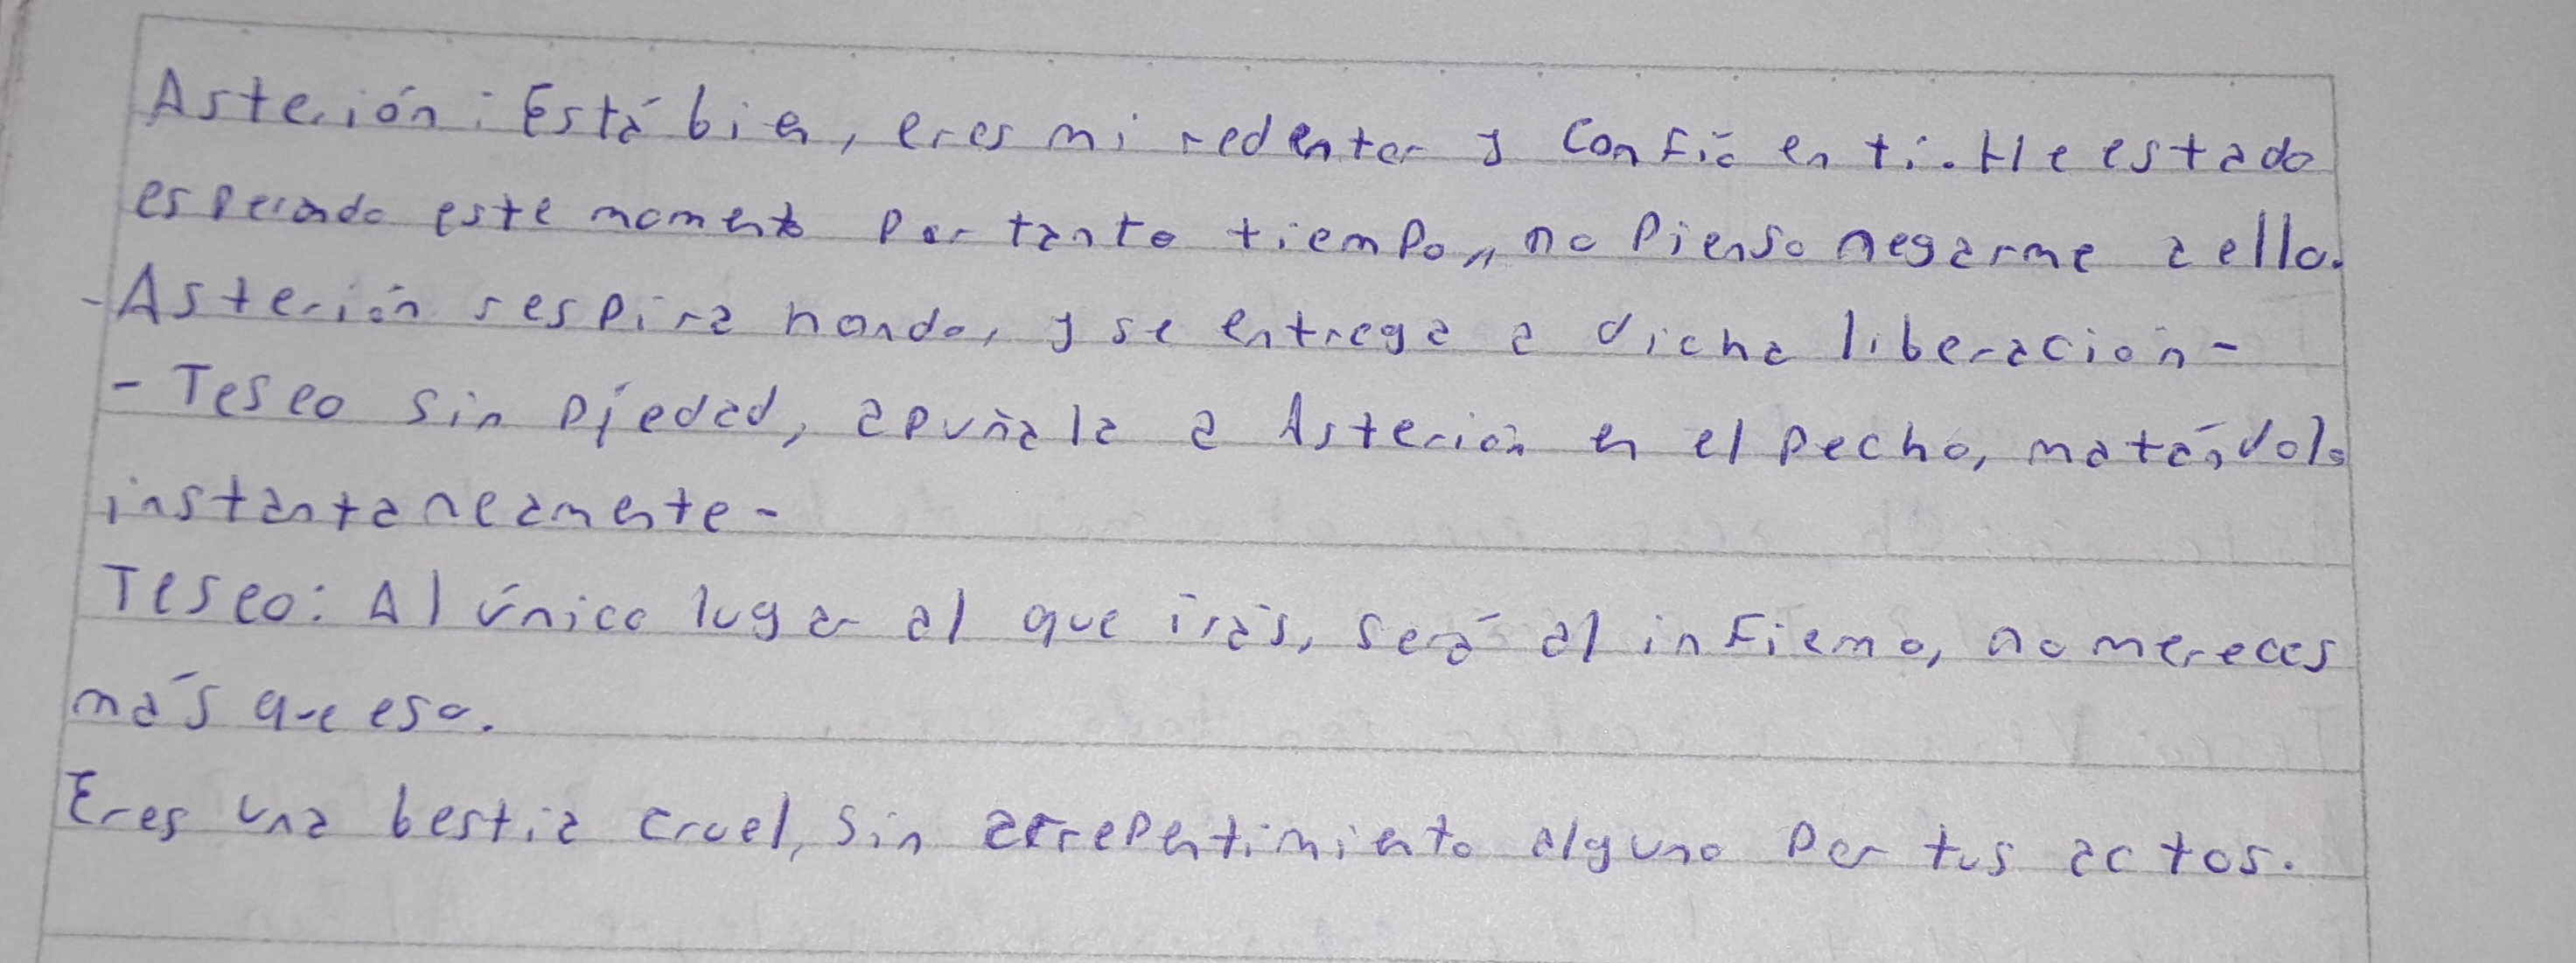 Asterión: Está bien, eres mi redentor y confío en ti. He estado
esperando este momento por tanto tiempo, no pienso negarme a ello.
-Asterión respira hondo, y se entrega a dicha liberación-
- Teseo sin piedad, apuñala a Asterión en el pecho, matándolo
instantaneamente-
Teseo: Al único lugar al que irás, será al infierno, no mereces
más que eso.
Eres una bestia cruel, sin arrepentimiento alguno por tus actos.